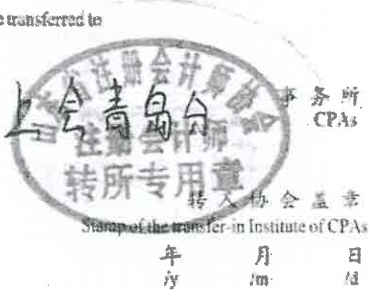 e transferred to
上会青岛分
事务所
CPAs
注册会计师协会
注册会计师
转所专用章
转入协会盖章
Stamp of the transfer-in Institute of CPAs
年 月 日
/y /m /d